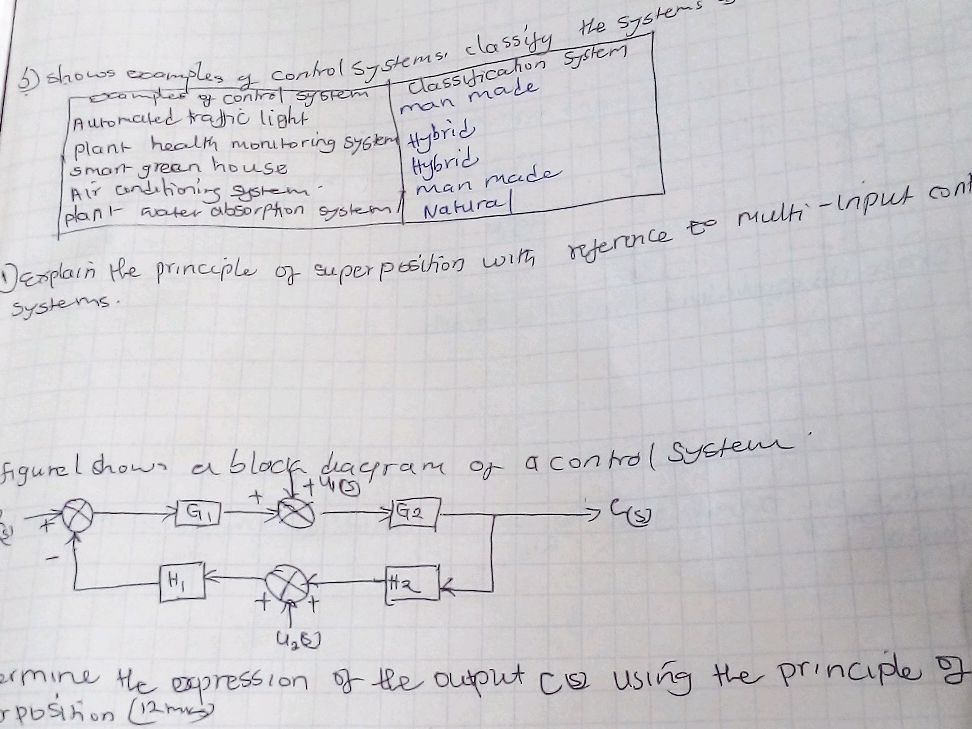 b) shows examples of control systems. classify the systems
examples of control system | classification system
Automated traffic light | man made
plant health monitoring system | Hybrid
smart green house | Hybrid
Air conditioning system. | man made
plant water absorption system | Natural
1) explain the principle of superposition with reference to multi-input cont
systems.
figure 1 shows a block diagram of a control system.
+ U1(s)
+ G1 + G2 C(s)
(s)
- H1 H2
+ +
U2(s)
ermine the expression of the output C(s) using the principle of
rposition (12mks)